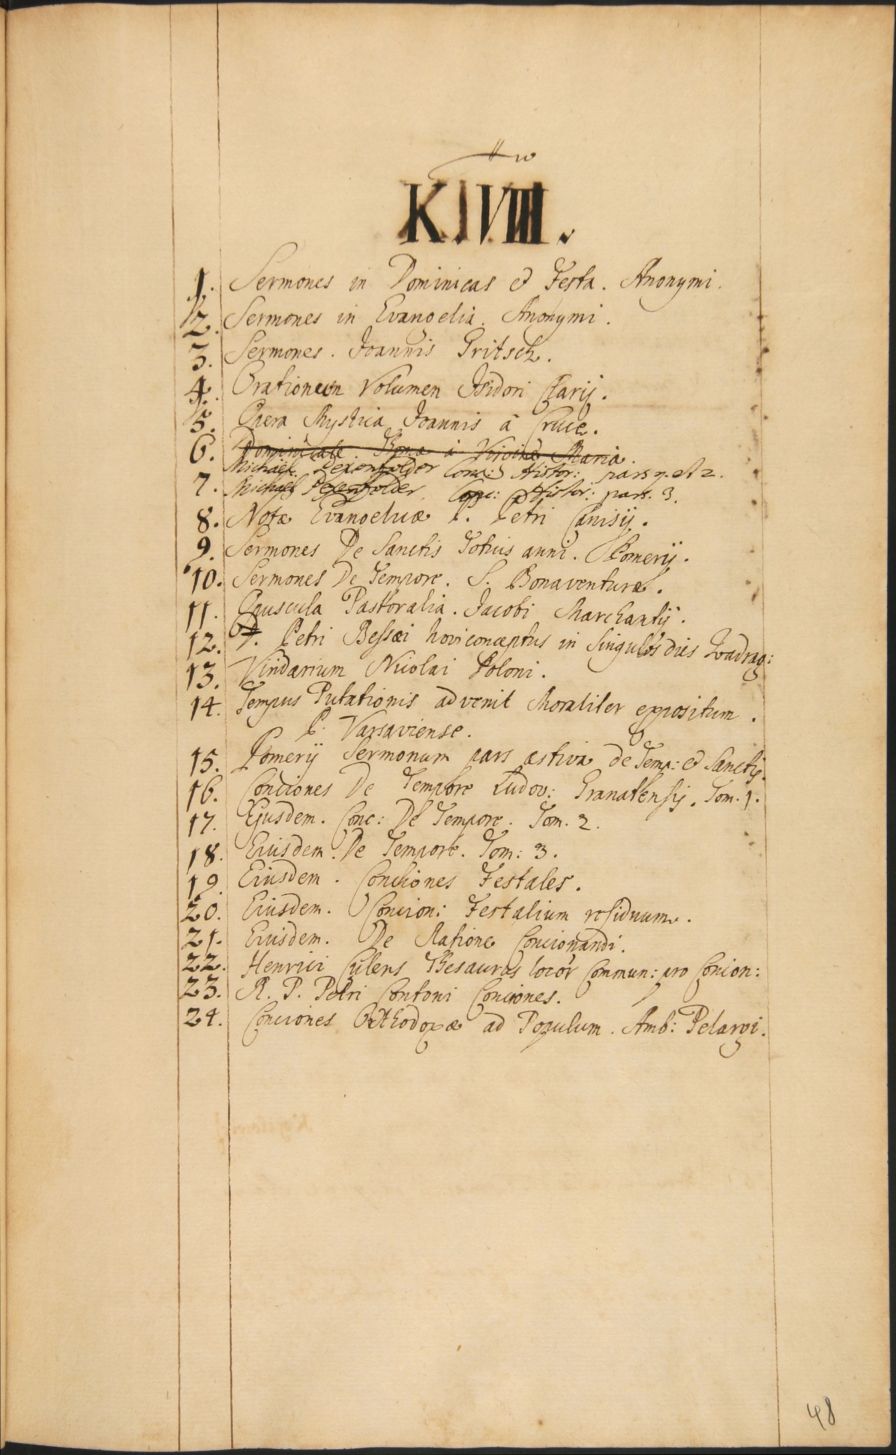 K. VIII.
1. Sermones in Dominicas et Festa. Anonymi.
2. Sermones in Evangelia. Anonymi.
3. Sermones. Joannis Gritsch.
4. Orationum Volumen Isidori Clarij.
5. Opera Mystica Joannis à Cruce.
6. Dominicale. Bonæ à Virgine Maria.
Michael Pexenfelder Conc: Histor: pars 1. et 2.
7. Michael Pexenfelder. Conc: Histor: pars. 3.
8. Notæ Evangelicæ P. Petri Canisij.
9. Sermones De Sanctis Totius anni. Pomerij.
10. Sermones De Tempore. S. Bonaventuræ.
11. Opuscula Pastoralia. Jacobi Marchantij.
12. P. Petri Bessæi novi conceptus in singulos dies Quadrag:
13. Viridarium Nicolai Poloni.
14. Tempus Putationis advenit Moraliter expositum.
P. Varsaviense.
15. Pomerij Sermonum pars æstiva de Temp: et Sanctis.
16. Conciones De Tempore Ludov: Granatensis. Tom. 1.
17. Ejusdem. Conc: De Tempore. Tom. 2.
18. Eiusdem. De Tempore. Tom: 3.
19. Eiusdem. Conciones Festales.
20. Eiusdem. Concion: Festalium residuum.
21. Eiusdem. De Ratione Concionandi.
22. Henrici Culens Thesaurus locor Commun: pro Concion:
23. R. P. Petri Contoni Conciones.
24. Conciones Orthodoxæ ad Populum. Amb: Pelargi.
48